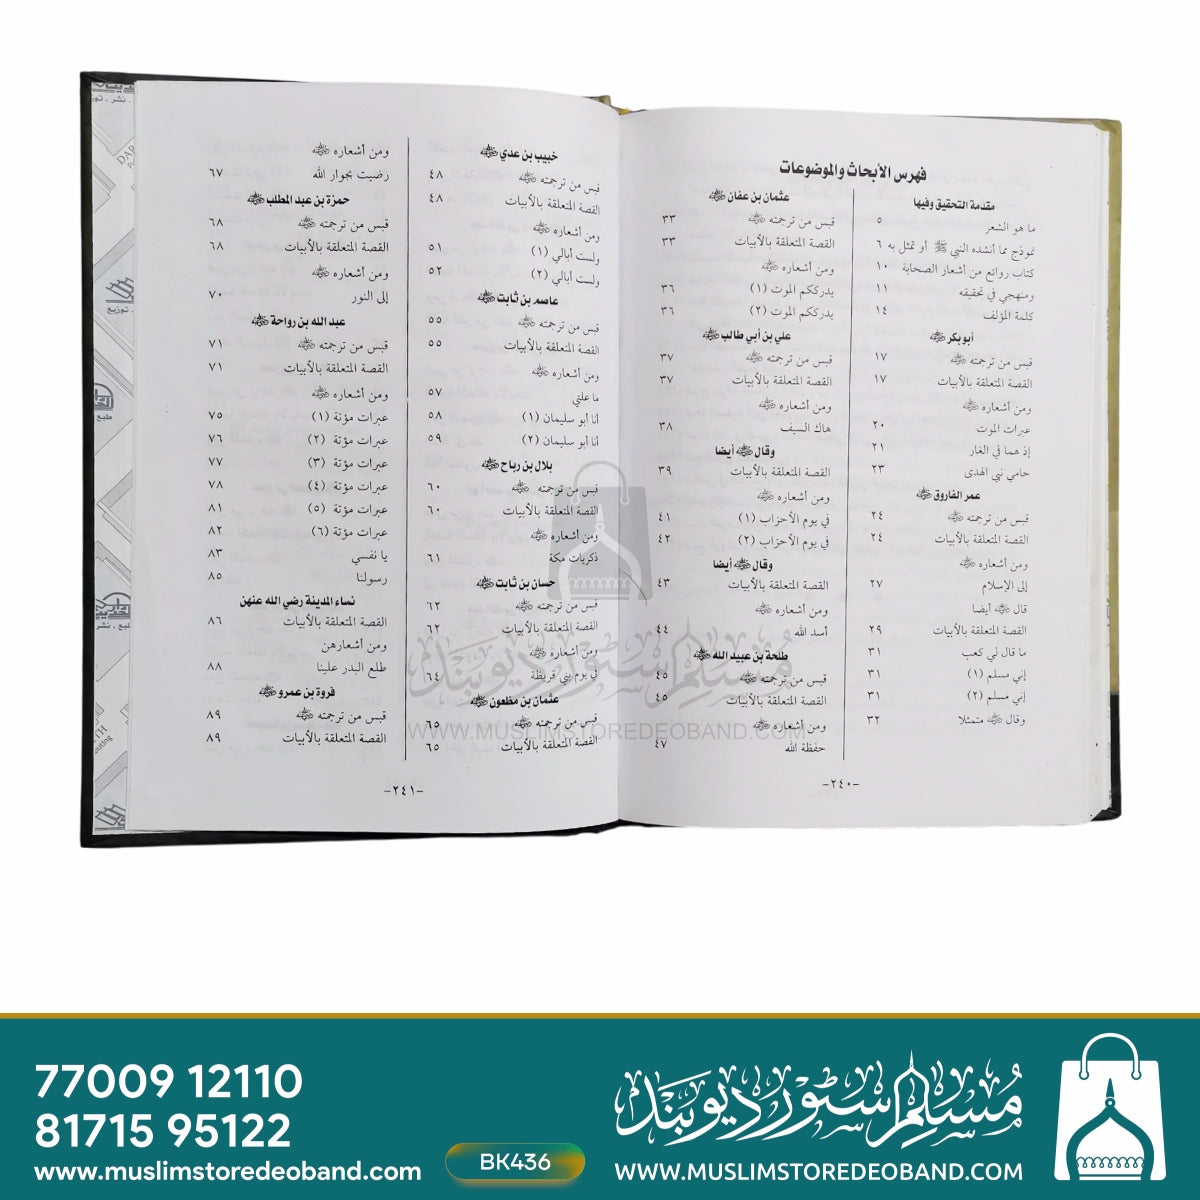 فهرس الأبحاث والموضوعات
مقدمة التحقيق وفيها
ما هو الشعر ٥
نموذج مما أنشده النبي ﷺ أو تمثل به ٦
كتاب روائع من أشعار الصحابة ١٠
ومنهجي في تحقيقه ١١
كلمة المؤلف ١٤
أبو بكر رضي الله عنه
قبس من ترجمته رضي الله عنه ١٧
القصة المتعلقة بالأبيات ١٧
ومن أشعاره رضي الله عنه
عبرات الموت ٢٠
إذ هما في الغار ٢١
حامي نبي الهدى ٢٣
عمر الفاروق رضي الله عنه
قبس من ترجمته رضي الله عنه ٢٤
القصة المتعلقة بالأبيات ٢٤
ومن أشعاره رضي الله عنه
إلى الإسلام ٢٧
قال رضي الله عنه أيضا
القصة المتعلقة بالأبيات ٢٩
ما قال لي كعب ٣١
إني مسلم (١) ٣١
إني مسلم (٢) ٣١
وقال رضي الله عنه متمثلا ٣٢
عثمان بن عفان رضي الله عنه
قبس من ترجمته رضي الله عنه ٣٣
القصة المتعلقة بالأبيات ٣٣
ومن أشعاره رضي الله عنه
يدرككم الموت (١) ٣٦
يدرككم الموت (٢) ٣٦
علي بن أبي طالب رضي الله عنه
قبس من ترجمته رضي الله عنه ٣٧
القصة المتعلقة بالأبيات ٣٧
ومن أشعاره رضي الله عنه
هاك السيف ٣٨
وقال رضي الله عنه أيضا
القصة المتعلقة بالأبيات ٣٩
ومن أشعاره رضي الله عنه
في يوم الأحزاب (١) ٤١
في يوم الأحزاب (٢) ٤٢
وقال رضي الله عنه أيضا
القصة المتعلقة بالأبيات ٤٣
ومن أشعاره رضي الله عنه
أسد الله ٤٤
طلحة بن عبيد الله رضي الله عنه
قبس من ترجمته رضي الله عنه ٤٥
القصة المتعلقة بالأبيات ٤٥
ومن أشعاره رضي الله عنه
حفظة الله ٤٧
-٢٤٠-
خبيب بن عدي رضي الله عنه
قبس من ترجمته رضي الله عنه ٤٨
القصة المتعلقة بالأبيات ٤٨
ومن أشعاره رضي الله عنه
ولست أبالي (١) ٥١
ولست أبالي (٢) ٥٢
عاصم بن ثابت رضي الله عنه
قبس من ترجمته رضي الله عنه ٥٥
القصة المتعلقة بالأبيات ٥٥
ومن أشعاره رضي الله عنه
ما علتي ٥٧
أنا أبو سليمان (١) ٥٨
أنا أبو سليمان (٢) ٥٩
بلال بن رباح رضي الله عنه
قبس من ترجمته رضي الله عنه ٦٠
القصة المتعلقة بالأبيات ٦٠
ومن أشعاره رضي الله عنه
ذكريات مكة ٦١
حسان بن ثابت رضي الله عنه
قبس من ترجمته رضي الله عنه ٦٢
القصة المتعلقة بالأبيات ٦٢
ومن أشعاره رضي الله عنه
في يوم بني قريظة ٦٤
عثمان بن مظعون رضي الله عنه
قبس من ترجمته رضي الله عنه ٦٥
القصة المتعلقة بالأبيات ٦٥
ومن أشعاره رضي الله عنه
رضيت بجوار الله ٦٧
حمزة بن عبد المطلب رضي الله عنه
قبس من ترجمته رضي الله عنه ٦٨
القصة المتعلقة بالأبيات ٦٨
ومن أشعاره رضي الله عنه
إلى النور ٧٠
عبد الله بن رواحة رضي الله عنه
قبس من ترجمته رضي الله عنه ٧١
القصة المتعلقة بالأبيات ٧١
ومن أشعاره رضي الله عنه
عبرات مؤتة (١) ٧٥
عبرات مؤتة (٢) ٧٦
عبرات مؤتة (٣) ٧٧
عبرات مؤتة (٤) ٧٨
عبرات مؤتة (٥) ٨١
عبرات مؤتة (٦) ٨٢
يا نفسي ٨٣
رسولنا ٨٥
نساء المدينة رضي الله عنهن
القصة المتعلقة بالأبيات ٨٦
ومن أشعارهن
طلع البدر علينا ٨٨
فروة بن عمرو رضي الله عنه
قبس من ترجمته رضي الله عنه ٨٩
القصة المتعلقة بالأبيات ٨٩
-٢٤١-
مسلم سٹور دیوبند
WWW.MUSLIMSTOREDEOBAND.COM
77009 12110
81715 95122
www.muslimstoredeoband.com
BK436
مسلم سٹور دیوبند
WWW.MUSLIMSTOREDEOBAND.COM